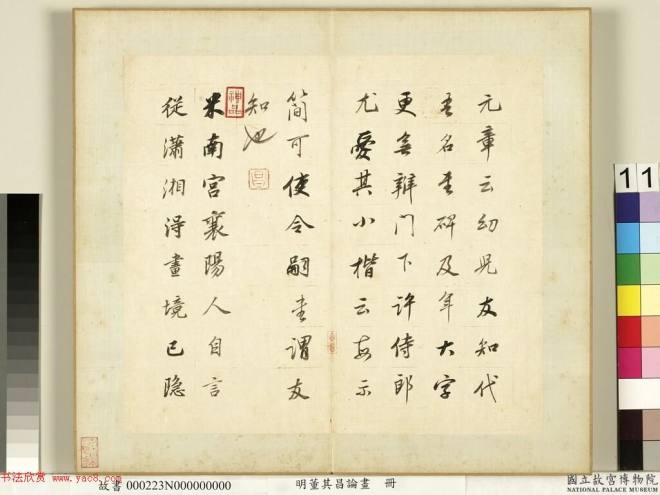 元章云幼兒友知代
吾名書碑及手大字
更無辨門下許侍郎
尤愛其小楷云每示
簡可使令嗣書謂友
知也
米南宮襄陽人自言
從瀟湘得畫境已隐
神品
11
書法欣赏 www.yac8.com
故書 000223N000000000
明董其昌論畫 冊
國立故宮博物院
NATIONAL PALACE MUSEUM